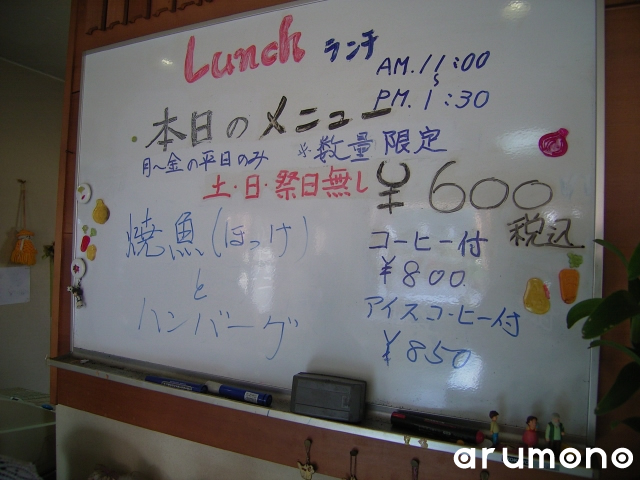 Lunch ランチ
AM.11:00
～
PM.1:30
本日のメニュー
月～金の平日のみ ※数量限定
土・日・祭日無し
¥600
税込
焼魚(ほっけ)
と
ハンバーグ
コーヒー付
¥800.
アイスコーヒー付
¥850
arumono